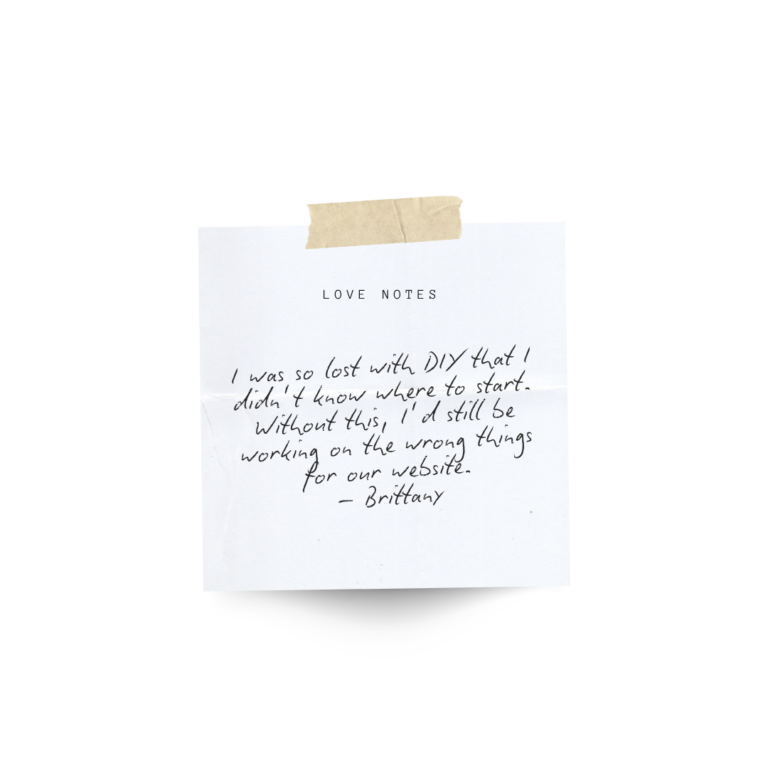 LOVE NOTES
I was so lost with DIY that I
didn't know where to start.
Without this, I'd still be
working on the wrong things
for our website.
– Brittany